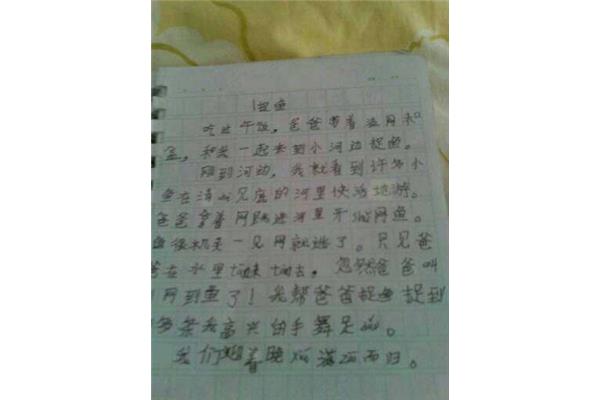 捉鱼
吃过午饭，爸爸带着渔网和
盆，和我一起来到小河边捉鱼。
刚到河边，我就看到许多小
鱼在清澈见底的河里快活地游。
爸爸拿着网跳进河里开始网鱼。
鱼很机灵一见网就逃了。只见爸
爸在水里 来 去，忽然爸爸叫
网到鱼了！我帮爸爸捉鱼捉到
多条我高兴的手舞足蹈。
我们 着晚 满 而归。